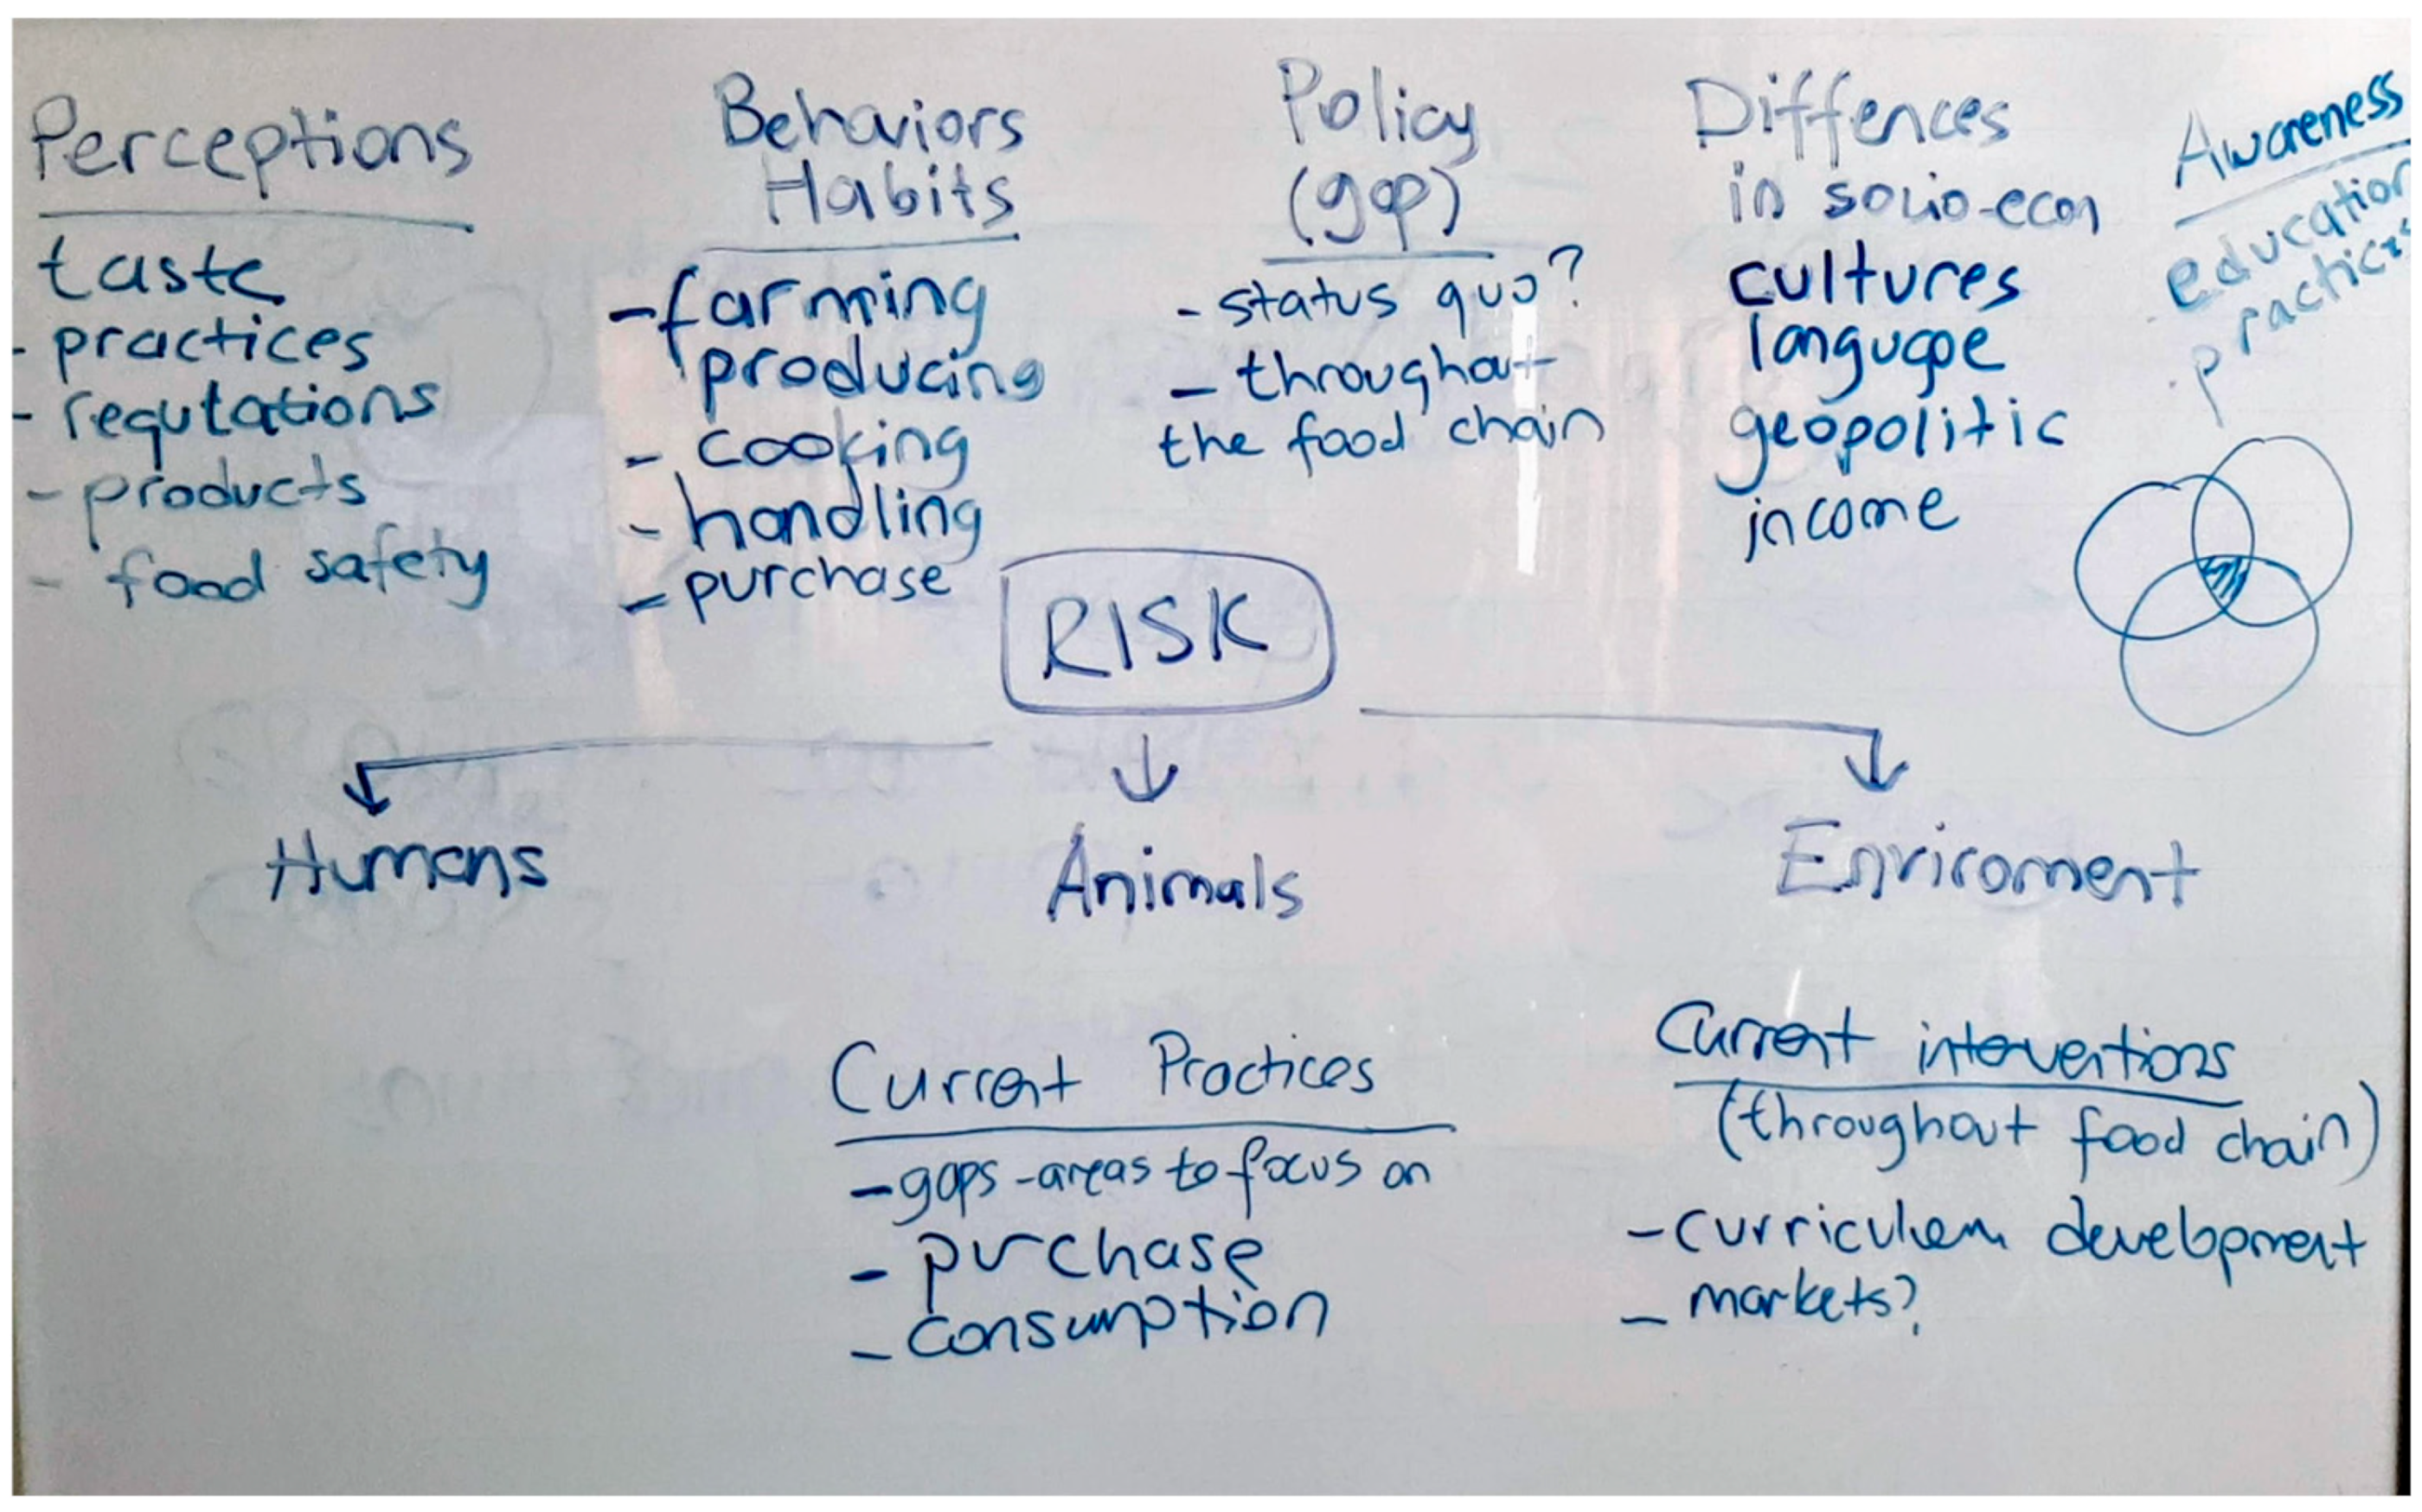 Perceptions
taste
- practices
- regutations
- products
- food safety
Behaviors
Habits
- farming
producing
- cooking
- handling
- purchase
Policy
(gap)
- status quo?
- throughout
the food chain
Diffences
in socio-econ
cultures
language
geopolitic
income
Awareness
education
practices
RISK
Humans
Animals
Enviroment
Current Practices
- gaps - areas to focus on
- purchase
- consumption
Current interventions
(throughout food chain)
- curriculum development
- markets?